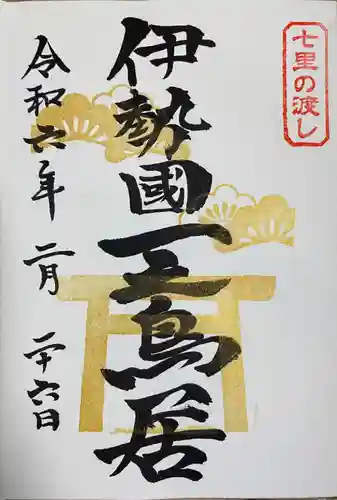 七里の渡し
伊勢國一鳥居
令和六年 二月 二十六日